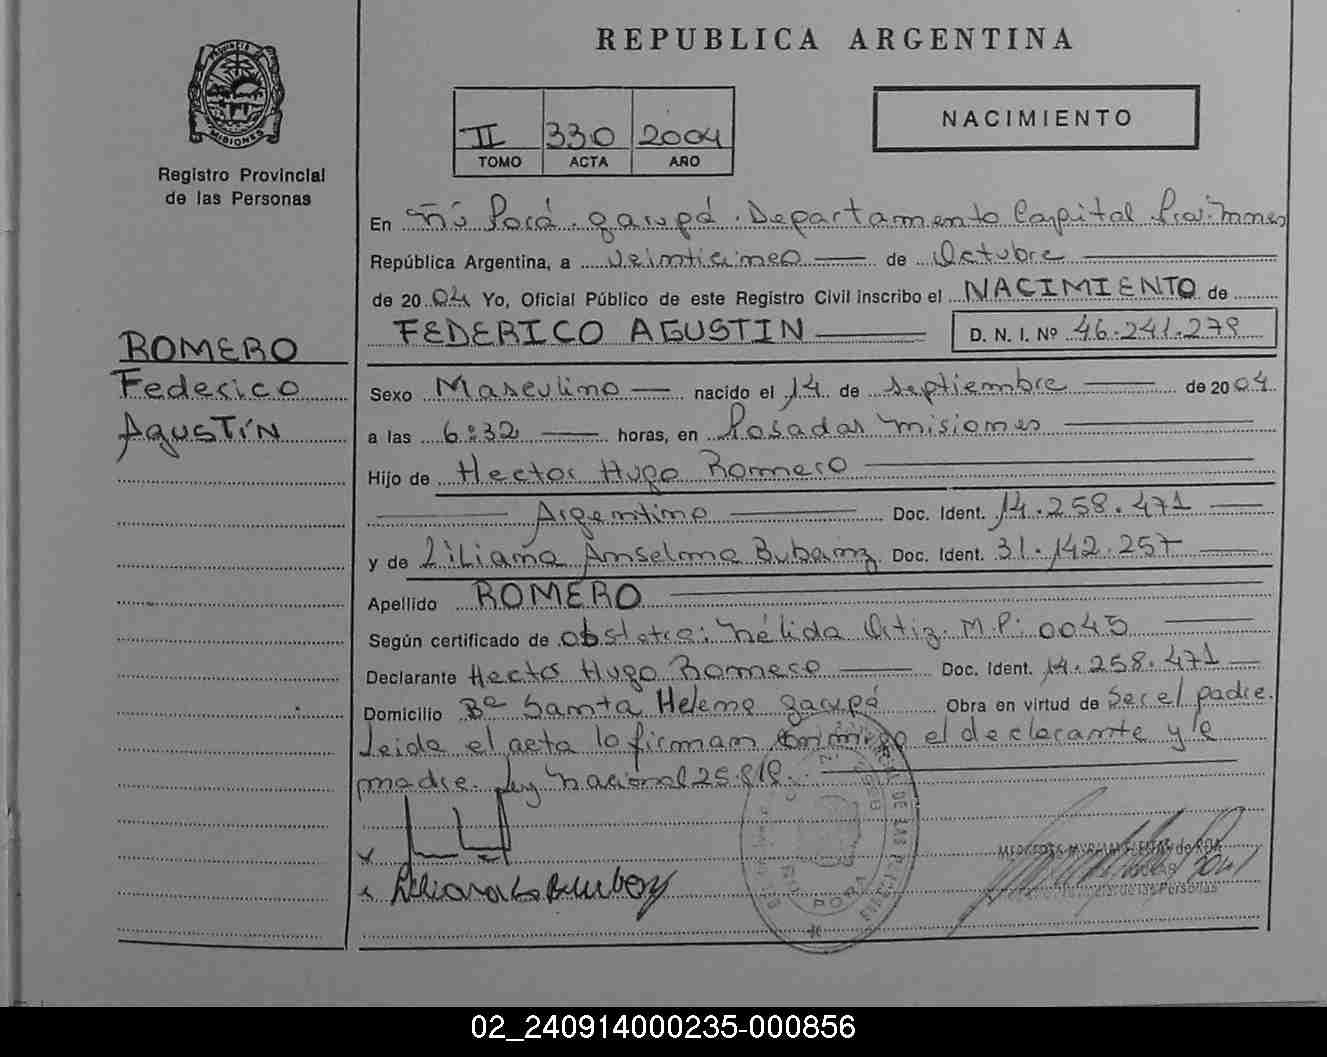 REPUBLICA ARGENTINA
PROVINCIA DE MISIONES
Registro Provincial
de las Personas
II 330 2004
TOMO ACTA AÑO
NACIMIENTO
En Ñú Porá. garupá. Departamento Capital Prov. Mnes
República Argentina, a veinticinco de Octubre
de 2004 Yo, Oficial Público de este Registro Civil inscribo el NACIMIENTO de
FEDERICO AGUSTIN D. N. I. Nº 46.241.279
ROMERO
Federico
Agustín
Sexo Masculino nacido el 14 de septiembre de 2004
a las 6:32 horas, en Posadas Misiones
Hijo de Hector Hugo Romero
Argentino Doc. Ident. 14.258.471
y de Liliana Anselma Doc. Ident. 31.142.257
Apellido ROMERO
Según certificado de obstetra: Nélida Ortiz. M.P: 0045
Declarante Hector Hugo Romero Doc. Ident. 14.258.471
Domicilio Bº Santa Helena garupá Obra en virtud de Ser el padre.
Leida el acta lo firman conmigo el declarante y la
madre. Ley Nacional 25.818.
02_240914000235-000856